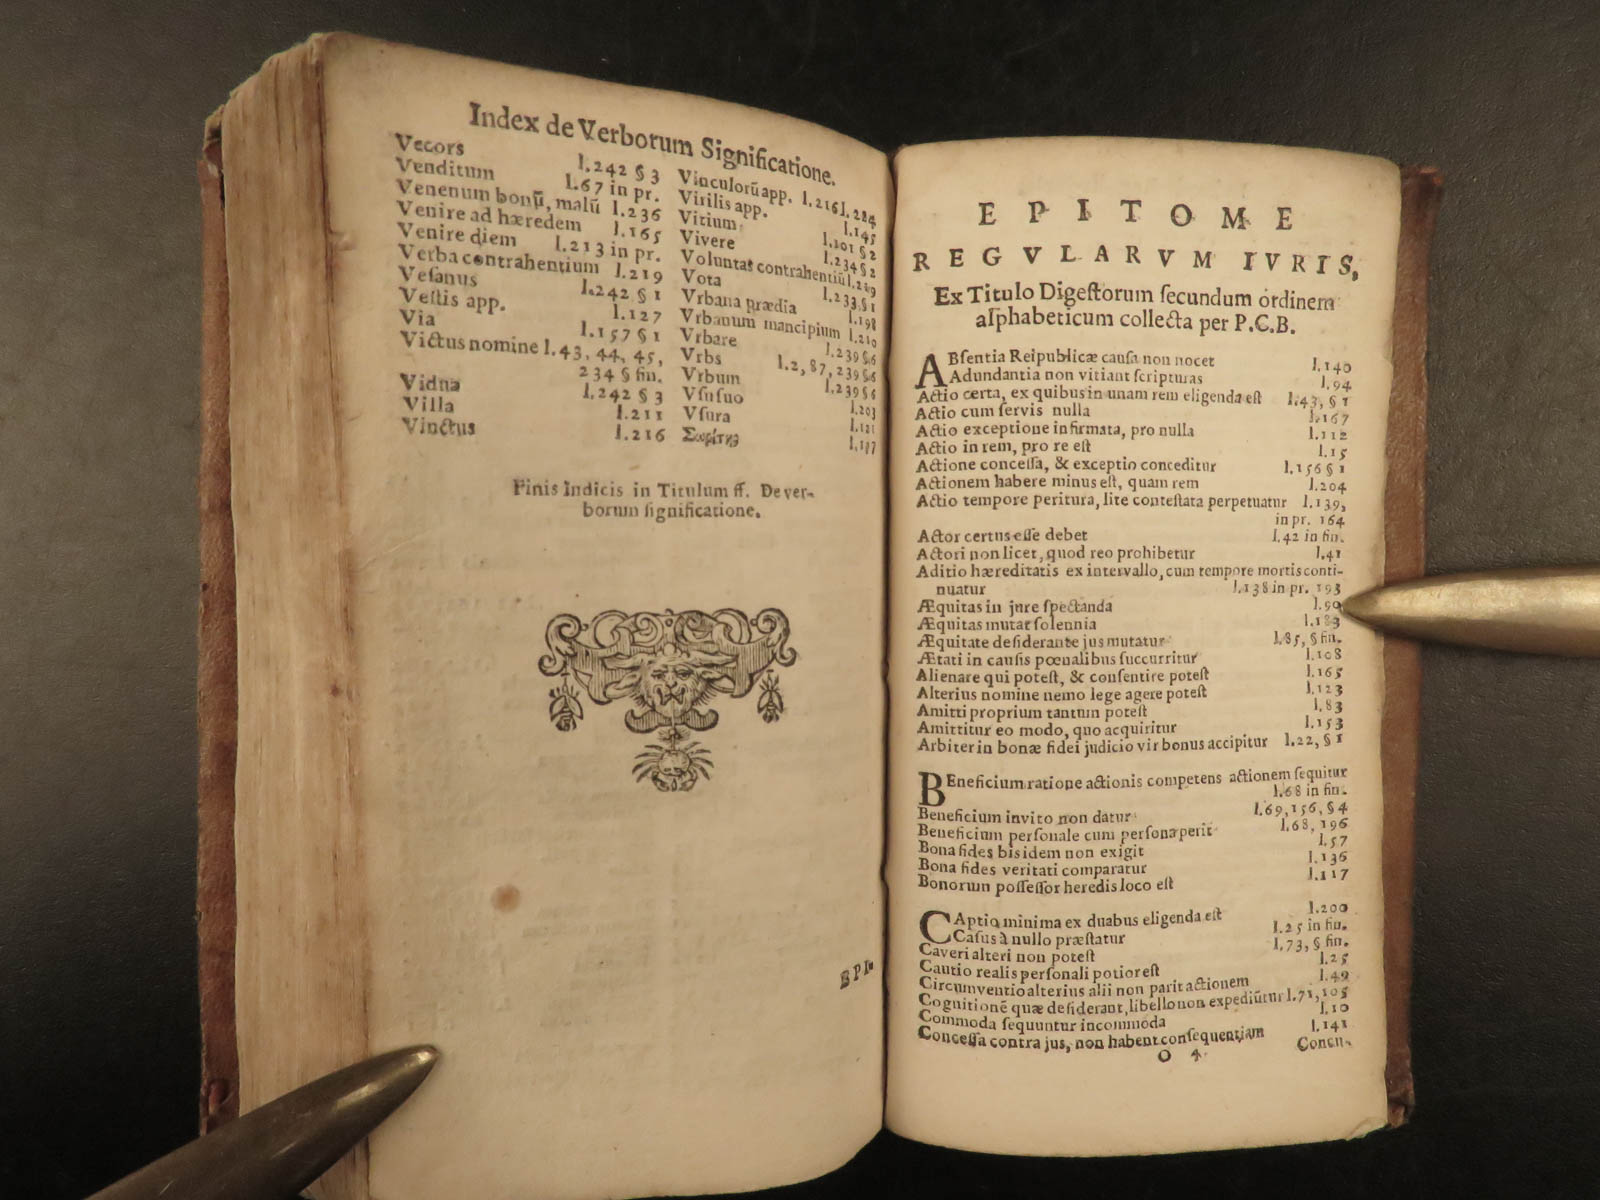 Index de Verborum Significatione.
Vecors l.242 § 3
Venditum l.67 in pr.
Venenum bonū, malū l.236
Venire ad hæredem l.165
Venire diem l.213 in pr.
Verba contrahentium l.219
Vesanus l.242 § 1
Vestis app. l.127
Via l.157 § 1
Victus nomine l.43, 44, 45,
234 § fin.
Vidua l.242 § 3
Villa l.211
Vinctus l.216
Vinculorū app. l.216 l.224
Virilis app. l.145
Vitium l.101 § 2
Vivere l.234 § 2
Voluntas contrahentiū l.219
Vota l.233. § 1
Vrbana prædia l.198
Vrbanum mancipium l.210
Vrbare l.239 § 6
Vrbs l.2, 87, 239 § 6
Vrbum l.239 § 6
Vsusuo l.203
Vsura l.121
Σωρίτης l.177
Finis Indicis in Titulum ff. De ver-
borum significatione.
EPI-
EPITOME
REGVLARVM IVRIS,
Ex Titulo Digestorum secundum ordinem
alphabeticum collecta per P.C.B.
ABsentia Reipublicæ causa non nocet l.140
Adundantia non vitiant scripturas l.94
Actio certa, ex quibus in unam rem eligenda est l.43, § 1
Actio cum servis nulla l.167
Actio exceptione infirmata, pro nulla l.112
Actio in rem, pro re est l.15
Actione concessa, & exceptio conceditur l.156 § 1
Actionem habere minus est, quam rem l.204
Actio tempore peritura, lite contestata perpetuatur l.139,
in pr. 164
Actor certus esse debet l.42 in fin.
Actori non licet, quod reo prohibetur l.41
Aditio hæreditatis ex intervallo, cum tempore mortis conti-
nuatur l.138 in pr. 193
Æquitas in jure spectanda l.90
Æquitas mutat solennia l.183
Æquitate desiderante jus mutatur l.85, § fin.
Ætati in causis pœnalibus succurritur l.108
Alienare qui potest, & consentire potest l.165
Alterius nomine nemo lege agere potest l.123
Amitti proprium tantum potest l.83
Amittitur eo modo, quo acquiritur l.153
Arbiter in bonæ fidei judicio vir bonus accipitur l.22, § 1
BEneficium ratione actionis competens actionem sequitur
l.68 in fin.
Beneficium invito non datur l.69, 156, § 4
Beneficium personale cum persona perit l.68, 196
Bona fides bis idem non exigit l.57
Bona fides veritati comparatur l.136
Bonorum possessor heredis loco est l.117
CAptio minima ex duabus eligenda est l.200
Casus à nullo præstatur l.25 in fin.
Caveri alteri non potest l.73, § fin.
Cautio realis personali potior est l.25
Circumventio alterius alii non parit actionem l.49
Cognitionē quæ desiderant, libello non expediūtur l.71, 105
Commoda sequuntur incommoda l.10
Concessa contra jus, non habent consequentiam l.141
O 4 Concu-